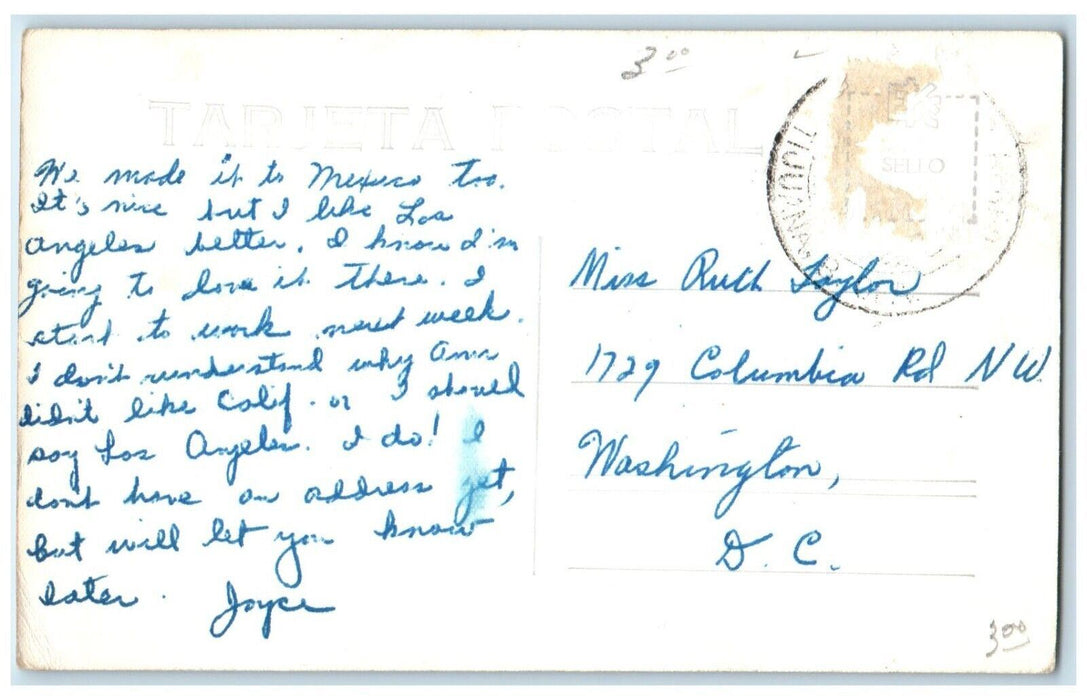 3.00
TARJETA POSTAL
TIJUANA
EK
SELLO
We made it to Mexico too.
It's nice but I like Los
Angeles better. I know I'm
going to love it there. I
start to work next week.
I don't understand why Ann
didn't like Calif. or I should
say Los Angeles. I do! I
don't have an address yet,
but will let you know
later. Joyce
Miss Ruth Taylor
1729 Columbia Rd NW
Washington,
D. C.
3.00